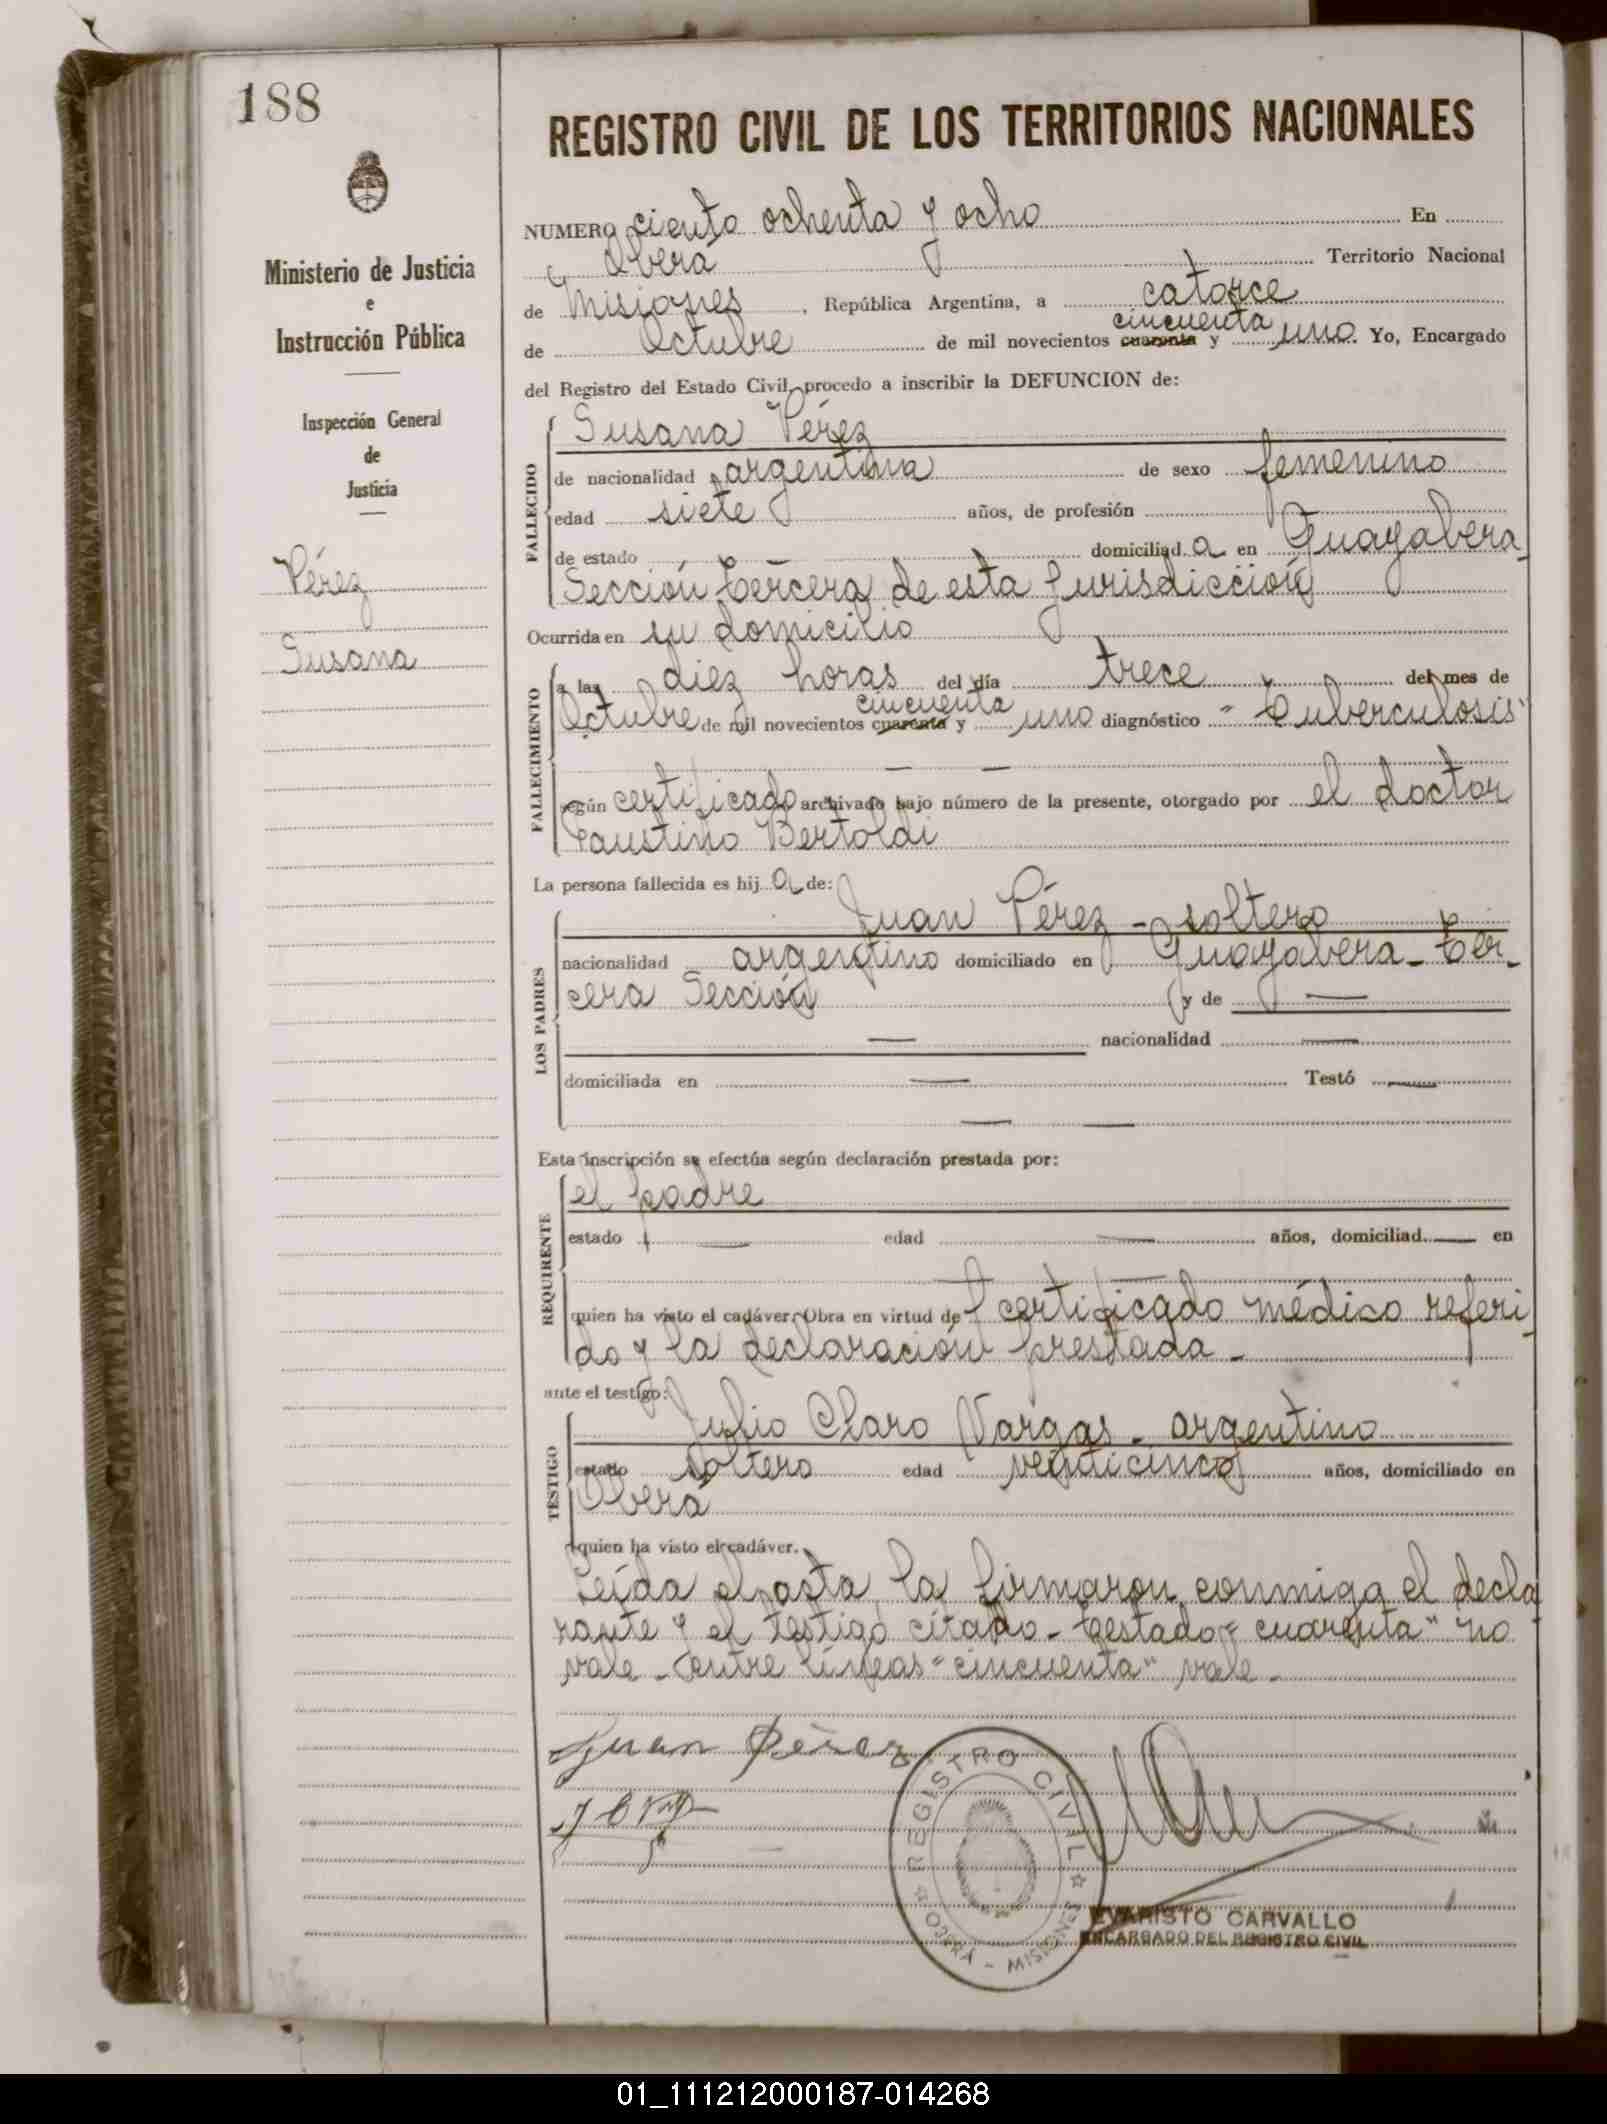 188
Ministerio de Justicia
e
Instrucción Pública
Inspección General
de
Justicia
Pérez
Susana
REGISTRO CIVIL DE LOS TERRITORIOS NACIONALES
NUMERO ciento ochenta y ocho En
Oberá Territorio Nacional
de Misiones, República Argentina, a catorce
de Octubre de mil novecientos cuarenta cincuenta y uno. Yo, Encargado
del Registro del Estado Civil, procedo a inscribir la DEFUNCION de:
FALLECIDO
Susana Pérez
de nacionalidad argentina de sexo femenino
edad siete años, de profesión
de estado domiciliada en Guayabera
Sección tercera de esta Jurisdicción
Ocurrida en su domicilio
FALLECIMIENTO
a las diez horas del día trece del mes de
Octubre de mil novecientos cuarenta cincuenta y uno diagnóstico "Tuberculosis"
— —
según certificado archivado bajo número de la presente, otorgado por el doctor
Faustino Bertoldi
La persona fallecida es hija de:
LOS PADRES
Juan Pérez - soltero
nacionalidad argentino domiciliado en Guayabera - Ter-
cera Sección y de —
— nacionalidad —
domiciliada en — Testó —
— —
Esta inscripción se efectúa según declaración prestada por:
REQUIRENTE
el padre
estado — edad — años, domiciliad — en
— —
quien ha visto el cadáver. Obra en virtud del certificado médico referi-
do y la declaración prestada -
ante el testigo:
TESTIGO
Julio Claro Vargas - argentino
estado soltero edad veinticinco años, domiciliado en
Oberá
quien ha visto el cadáver.
Leída el acta, la firmaron conmigo el decla
rante y el testigo citado - testado = cuarenta" no
vale - entre líneas "cincuenta" vale -
Juan Pérez
REGISTRO CIVIL
OBERA - MISIONES
EVARISTO CARVALLO
ENCARGADO DEL REGISTRO CIVIL
01_111212000187-014268